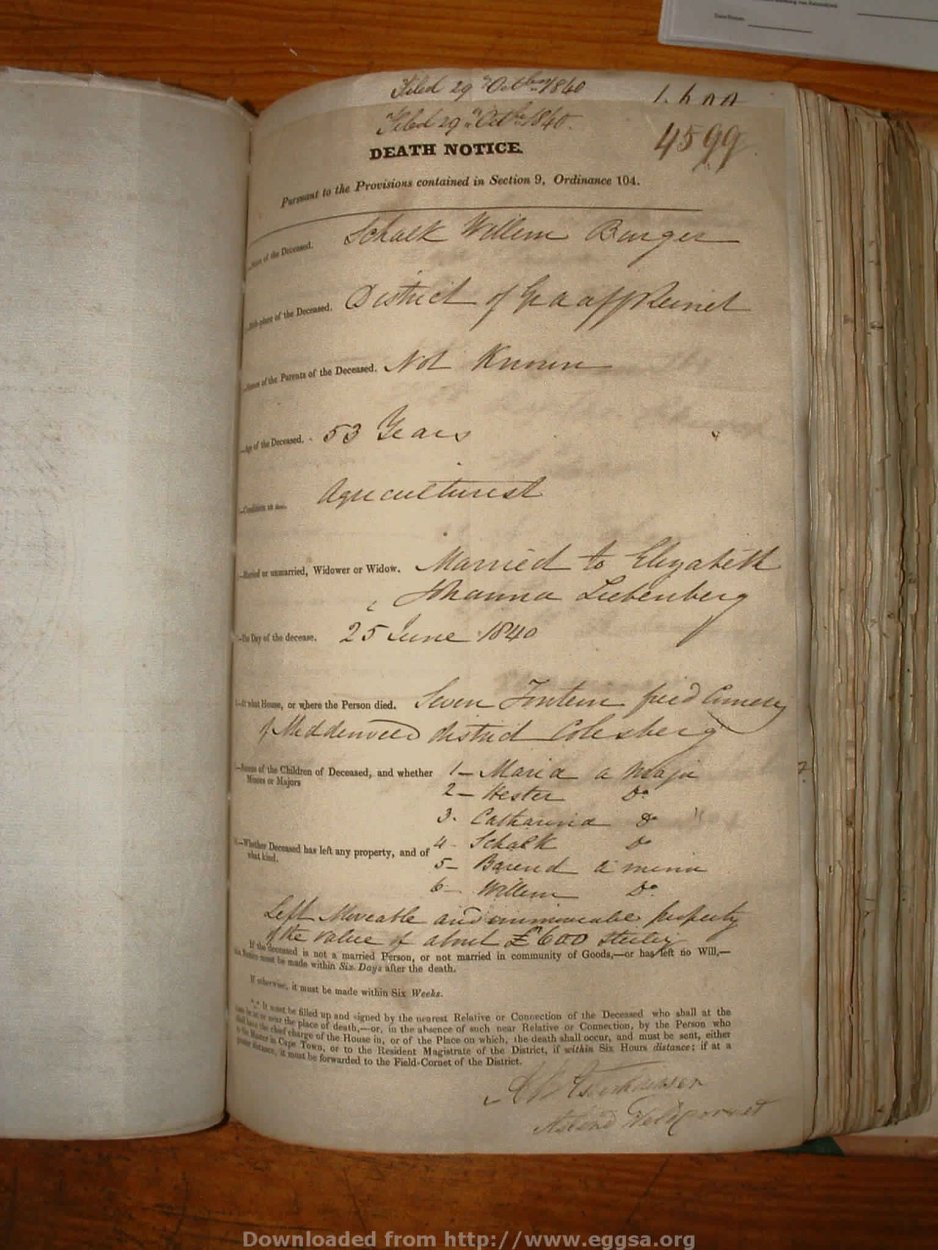 Filed 29 Octber 1840
Filed 29 Octbr 1840.
4599
DEATH NOTICE.
Pursuant to the Provisions contained in Section 9, Ordinance 104.
Name of the Deceased. Schalk Willem Burger
Birth-place of the Deceased. District of Graaff Reinet
Names of the Parents of the Deceased. Not Known
Age of the Deceased. 53 Years
Condition in Agriculturist
Married or unmarried, Widower or Widow. Married to Elizabeth
Johanna Liebenberg
The Day of the decease. 25 June 1840
At what House, or where the Person died. Seven Fontein
of Middenveld district Colesberg
Names of the Children of Deceased, and whether 1 - Maria a Major
Minors or Majors 2 - Hester Do
3. Catharina Do
Whether Deceased has left any property, and of 4 - Schalk Do
what kind. 5 - Barend a minor
6 - Willem Do
Left Moveable and immoveable property
of the value of about £600 Sterling
If the deceased is not a married Person, or not married in community of Goods,—or has left no Will,—
this Notice must be made within Six Days after the death.
If otherwise, it must be made within Six Weeks.
It must be filled up and signed by the nearest Relative or Connection of the Deceased who shall at the
time be at or near the place of death,—or, in the absence of such near Relative or Connection, by the Person who
shall have the chief charge of the House in, or of the Place on which, the death shall occur, and must be sent, either
to the Master in Cape Town, or to the Resident Magistrate of the District, if within Six Hours distance; if at a
greater distance, it must be forwarded to the Field-Cornet of the District.
Downloaded from http://www.eggsa.org